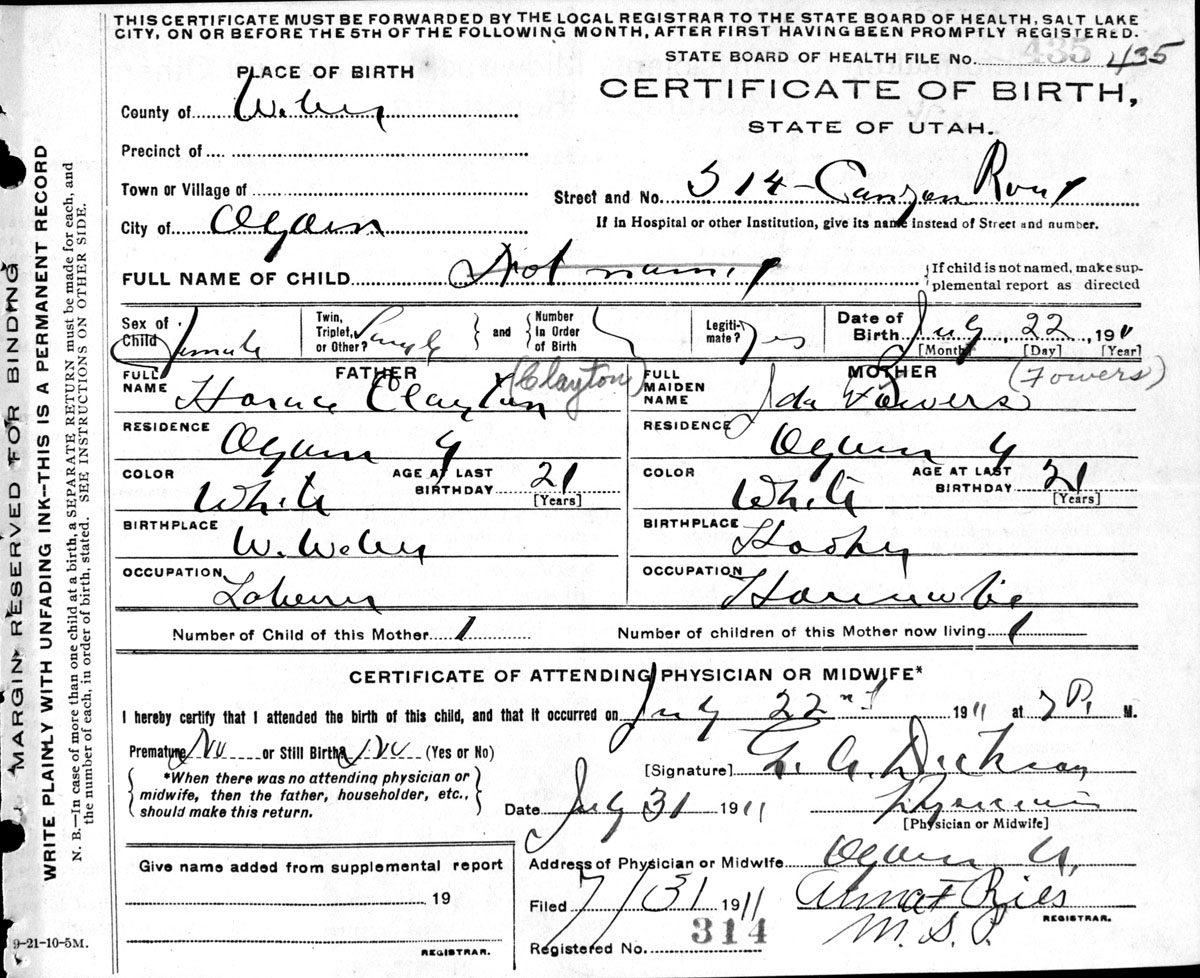 THIS CERTIFICATE MUST BE FORWARDED BY THE LOCAL REGISTRAR TO THE STATE BOARD OF HEALTH, SALT LAKE
CITY, ON OR BEFORE THE 5TH OF THE FOLLOWING MONTH, AFTER FIRST HAVING BEEN PROMPTLY REGISTERED.
STATE BOARD OF HEALTH FILE No. 435 435
PLACE OF BIRTH
CERTIFICATE OF BIRTH,
STATE OF UTAH.
County of Weber
Precinct of
Town or Village of
Street and No. 514 - Canyon Road
City of Ogden
If in Hospital or other Institution, give its name instead of Street and number.
FULL NAME OF CHILD Not named
If child is not named, make sup-
plemental report as directed
Sex of Child Female
Twin, Triplet, or Other? Single and Number in Order of Birth
Legiti-mate? Yes
Date of Birth July 22, 1911
[Month] [Day] [Year]
FATHER
FULL NAME Horace Clayton (Clayton)
RESIDENCE Ogden U
COLOR White AGE AT LAST BIRTHDAY 21 [Years]
BIRTHPLACE W. Weber
OCCUPATION Laborer
MOTHER
FULL MAIDEN NAME Ida Fowers (Fowers)
RESIDENCE Ogden U
COLOR White AGE AT LAST BIRTHDAY 21 [Years]
BIRTHPLACE Hooper
OCCUPATION Housewife
Number of Child of this Mother 1 Number of children of this Mother now living 1
CERTIFICATE OF ATTENDING PHYSICIAN OR MIDWIFE*
I hereby certify that I attended the birth of this child, and that it occurred on July 22nd 1911 at 7 P. M.
Premature No or Still Birth No (Yes or No)
*When there was no attending physician or
midwife, then the father, householder, etc.,
should make this return.
[Signature] Dickson
Date July 31 1911 Physician
[Physician or Midwife]
Address of Physician or Midwife Ogden U.
Filed 7/31 1911
REGISTRAR.
Registered No. 314
Give name added from supplemental report
19
REGISTRAR.
9-21-10-5M.
MARGIN RESERVED FOR BINDING
WRITE PLAINLY WITH UNFADING INK—THIS IS A PERMANENT RECORD
N. B.—In case of more than one child at a birth, a SEPARATE RETURN must be made for each, and
the number of each, in order of birth, stated. SEE INSTRUCTIONS ON OTHER SIDE.